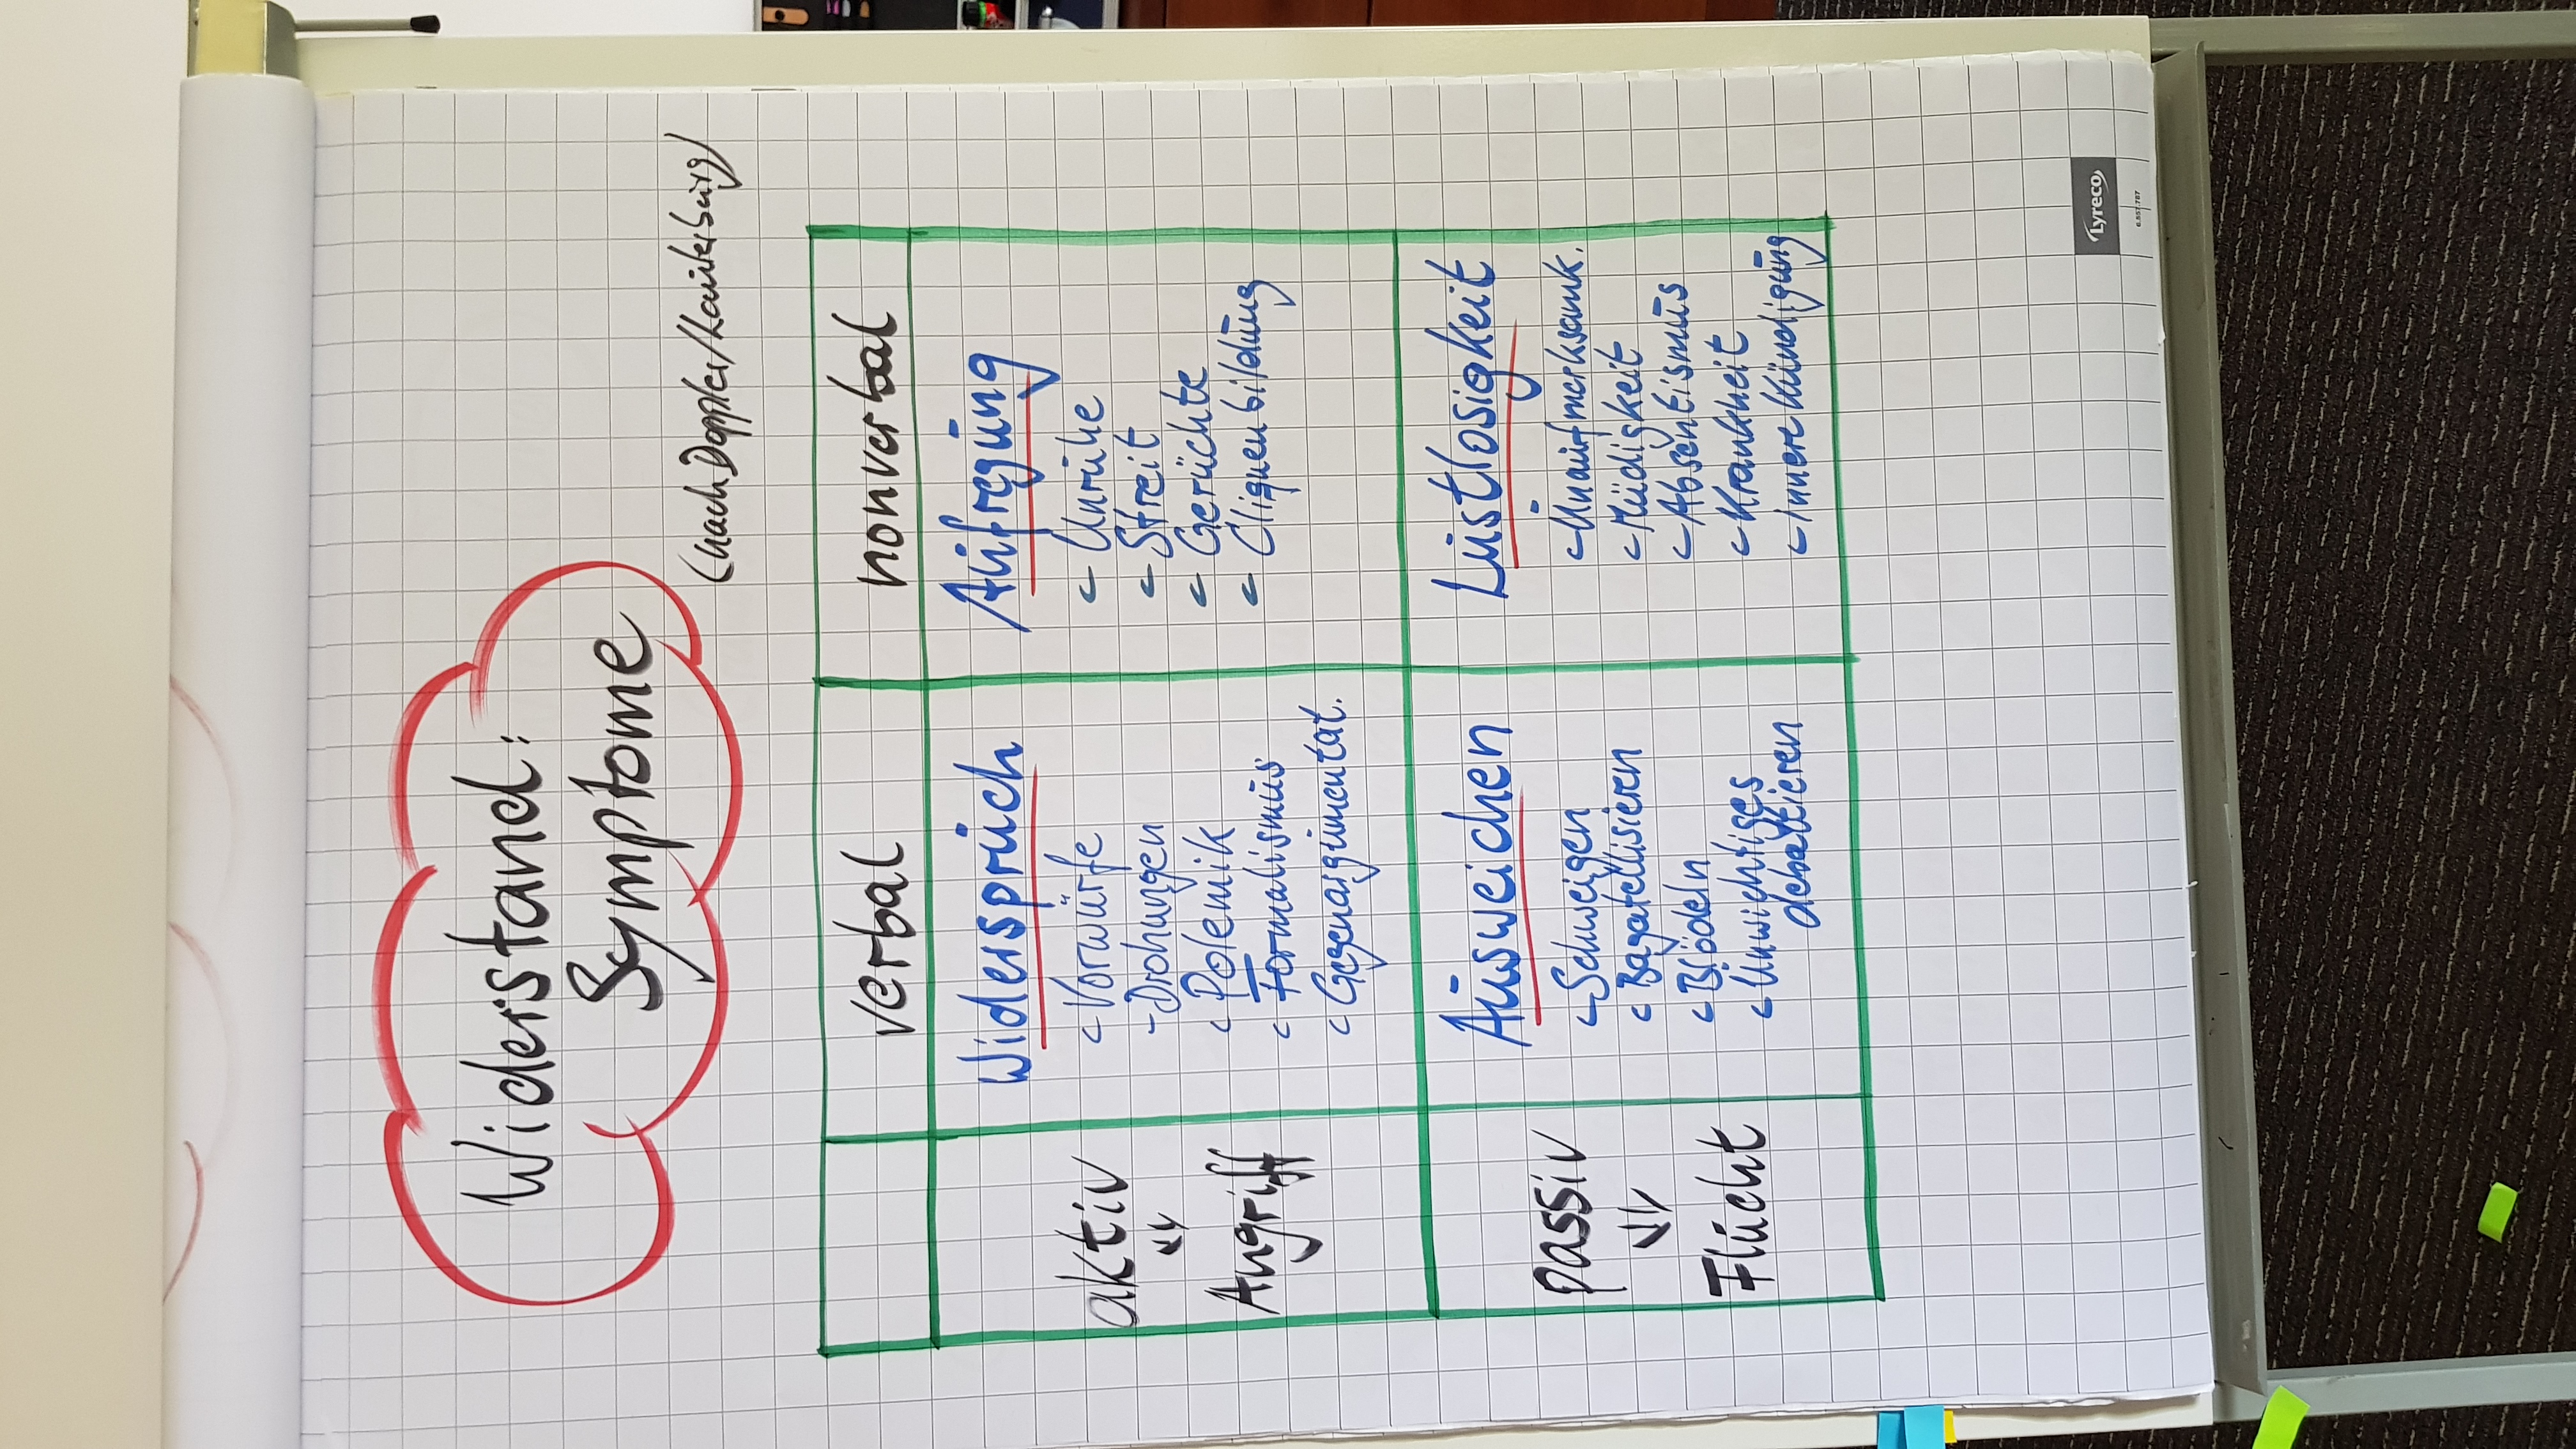 Widerstand:
Symptome
(nach Doppler/Lauterburg)
verbal
nonverbal
aktiv
Angriff
Widerspruch
- Vorwürfe
- Drohungen
- Polemik
- Formalismus
- Gegenargumentat.
Aufregung
- Unruhe
- Streit
- Gerüchte
- Cliquenbildung
passiv
Flucht
Ausweichen
- Schweigen
- Bagatellisieren
- Blödeln
- Unwichtiges
debattieren
Lustlosigkeit
- Unaufmerksamk.
- Müdigkeit
- Absentismus
- Krankheit
- Innere Kündigung
Lyreco
6.557.787